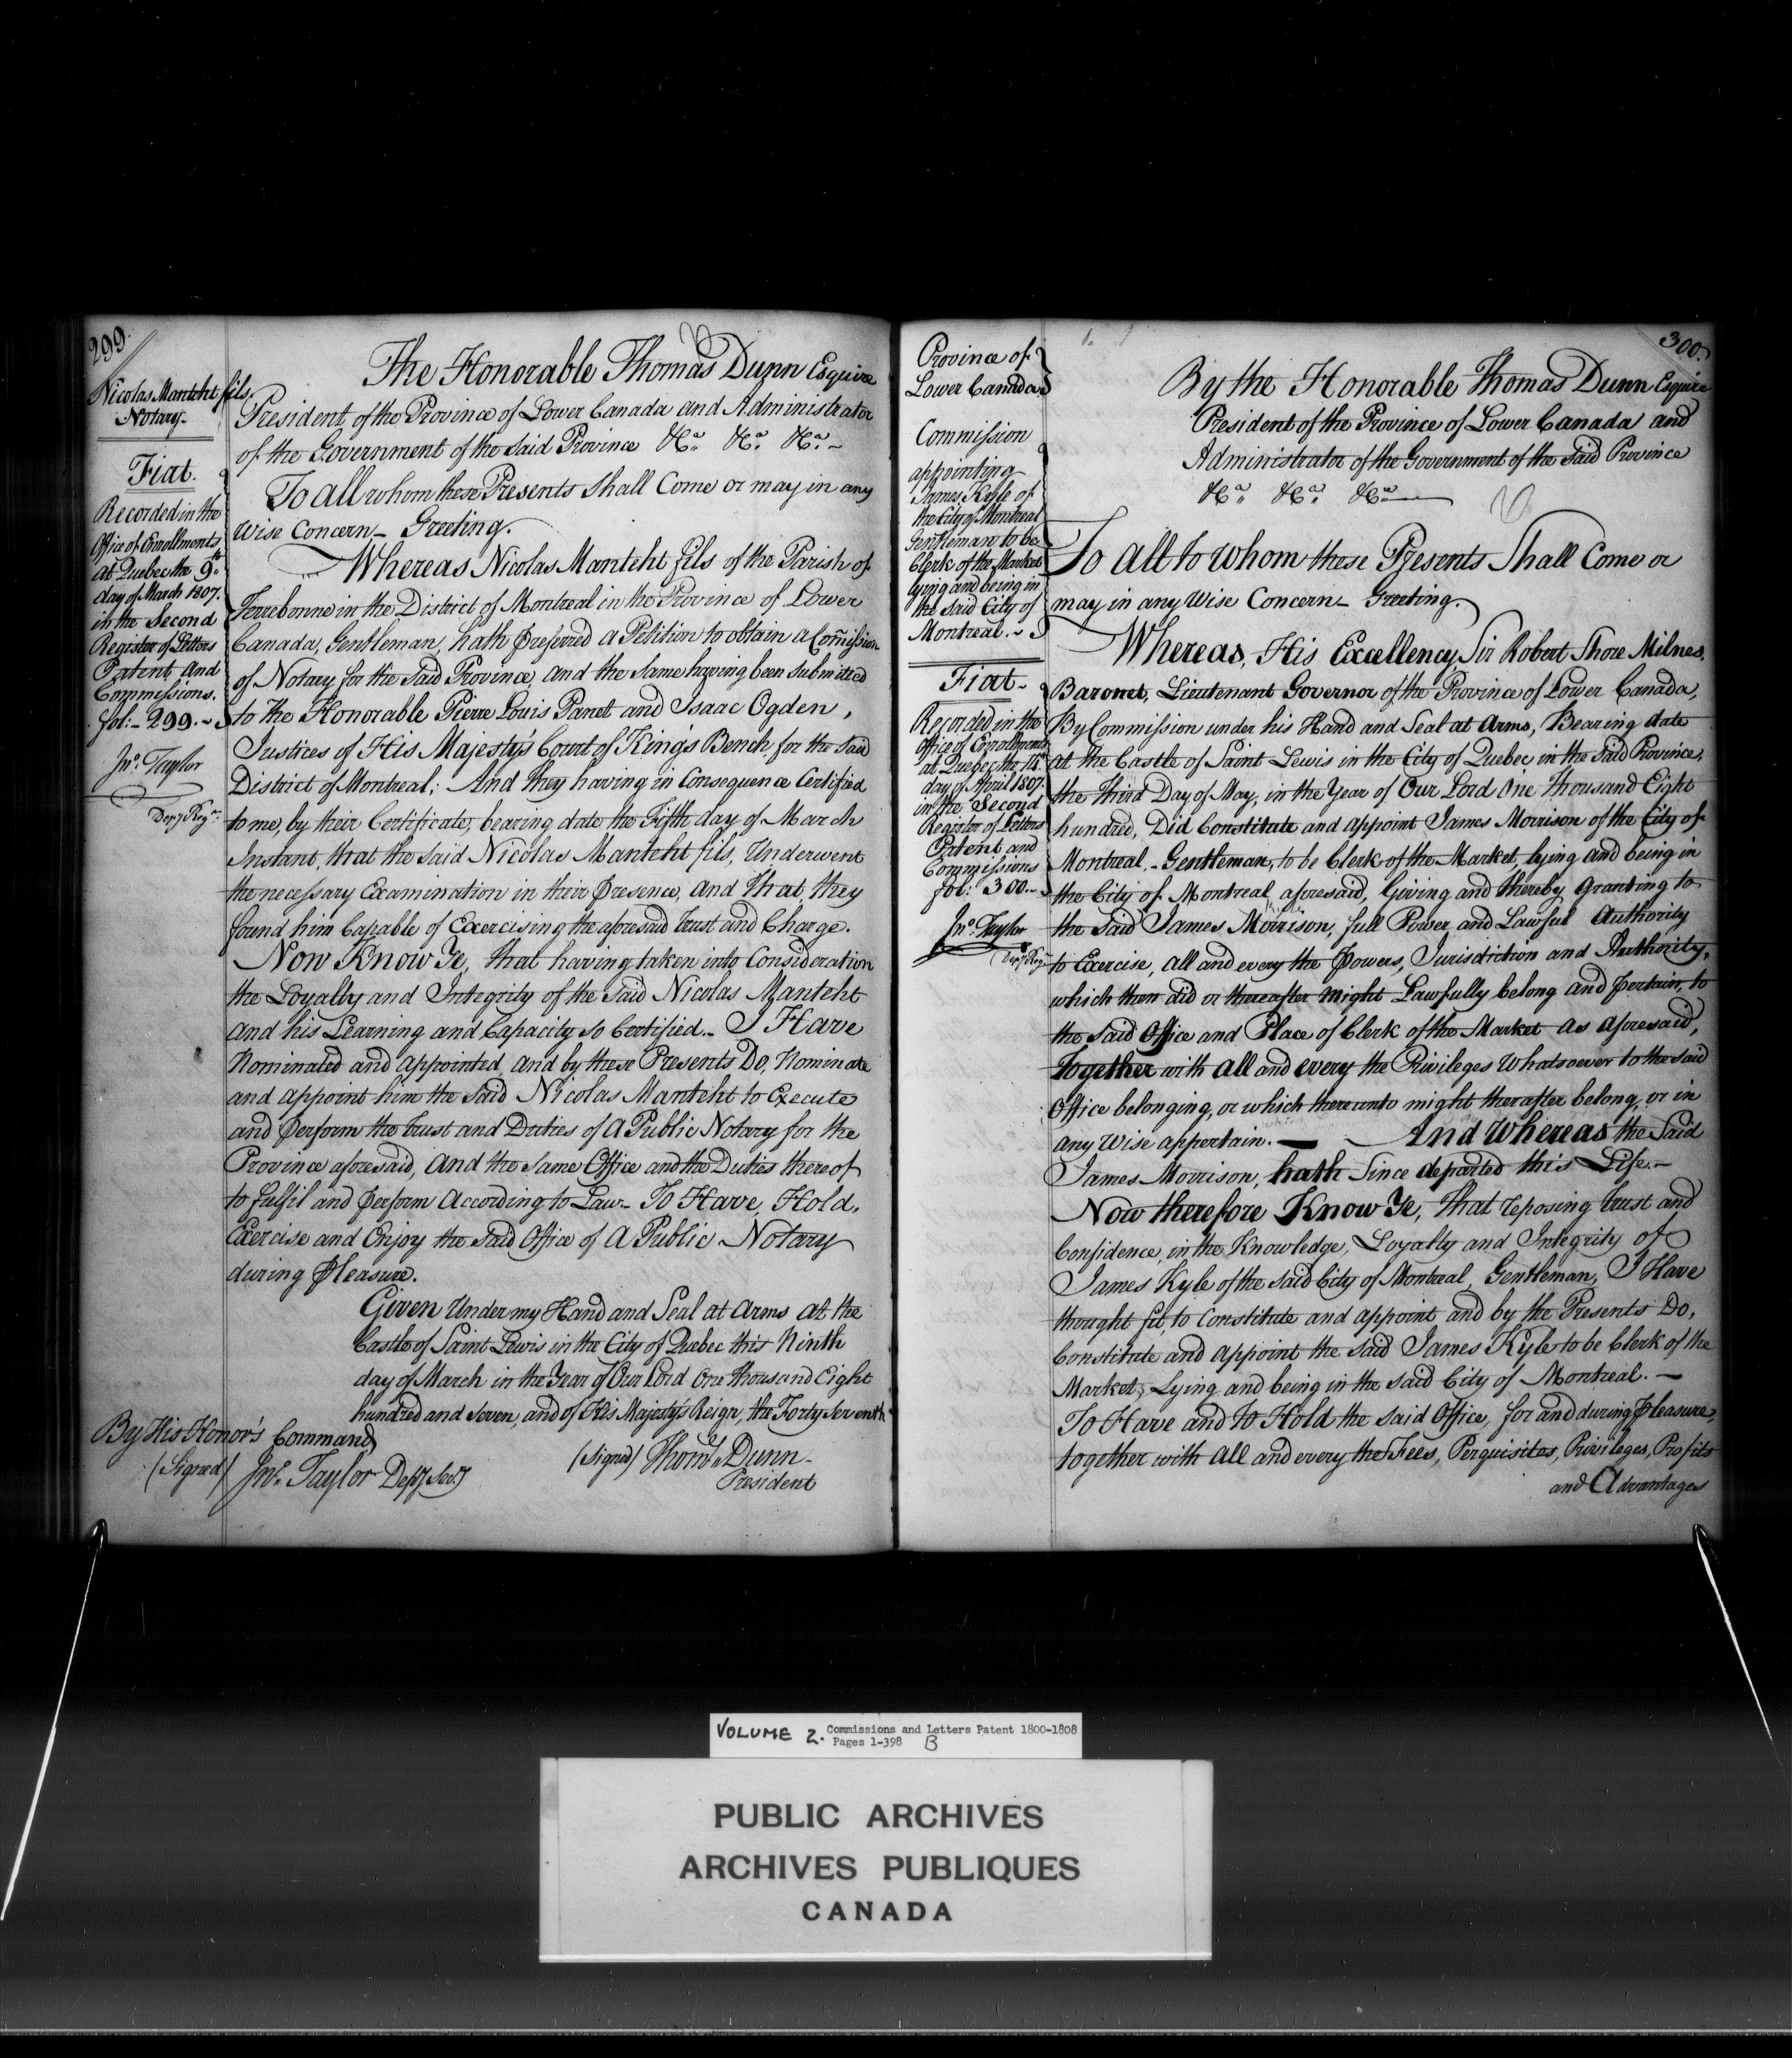 299.
Nicolas Manteht fils,
Notary.
Fiat.
Recorded in the
Office of Enrollments
at Quebec the 9th
day of March 1807.
in the Second
Register of Letters
Patent and
Commissions.
fol:- 299.~
Jno. Taylor
Depy Regr.
The Honorable Thomas Dunn Esquire
President of the Province of Lower Canada and Administrator
of the Government of the said Province &ca. &ca. &ca.~
To all whom these Presents shall Come or may in any
Wise Concern_ Greeting.
Whereas Nicolas Manteht fils of the Parish of
Terrebonne in the District of Montreal in the Province of Lower
Canada, Gentleman, hath preferred a Petition to obtain a Commission
of Notary for the said Province, and the same having been submitted
to the Honorable Pierre Louis Panet and Isaac Ogden,
Justices of His Majesty's Court of King's Bench for the said
District of Montreal; And they having in Consequence Certified
to me, by their Certificate, bearing date the Fifth day of March
Instant, that the said Nicolas Manteht fils, Underwent
the necessary Examination in their presence, and that, they
found him Capable of Exercising the aforesaid trust and Charge.
Now Know Ye, that having taken into Consideration
the Loyalty and Integrity of the said Nicolas Manteht
and his Learning and Capacity so Certified._ I Have
Nominated and appointed, and by these Presents Do, Nominate
and appoint him the said Nicolas Manteht to Execute
and perform the trust and Duties of A Public Notary for the
Province aforesaid, And the same Office and the Duties thereof
to fulfil and perform According to Law._ To Have, Hold,
Exercise and Enjoy the said Office of A Public Notary
during pleasure.
Given Under my Hand and Seal at Arms at the
Castle of Saint Lewis in the City of Quebec this Ninth
day of March in the Year of Our Lord One thousand Eight
hundred and seven, and of His Majesty's Reign, the Forty Seventh
By His Honor's Command,
(Signed) Jno. Taylor Depy Secy
(Signed) Thoms. Dunn_
President
300.
Province of
Lower Canada
Commission
appointing
James Kyle of
the City of Montreal
Gentleman to be
Clerk of the Market
lying and being in
the said City of
Montreal.~
Fiat_
Recorded in the
Office of Enrollments
at Quebec the 14th
day of April 1807
in the Second
Register of Letters
Patent and
Commissions
fol: 300._
Jno. Taylor
Depy Regr
By the Honorable Thomas Dunn Esquire
President of the Province of Lower Canada and
Administrator of the Government of the said Province
&ca. &ca. &ca.
To all to whom these Presents Shall Come or
may in any Wise Concern_ Greeting.
Whereas, His Excellency, Sir Robert Shore Milnes,
Baronet, Lieutenant Governor of the Province of Lower Canada,
By Commission under his Hand and Seal at Arms, Bearing date
at the Castle of Saint Lewis in the City of Quebec in the said Province,
the Third Day of May, in the Year of Our Lord One Thousand Eight
hundred, Did Constitute and appoint James Morrison of the City of
Montreal,_ Gentleman, to be Clerk of the Market, lying and being in
the City of Montreal aforesaid, Giving and thereby Granting to
the said James Morrison, full Power and Lawful Authority
to Exercise, all and every the Powers, Jurisdiction and Authority,
which then did or thereafter might Lawfully belong and pertain, to
the said Office and Place of Clerk of the Market as aforesaid,
Together with all and every the Privileges Whatsoever to the said
Office belonging, or which thereunto might thereafter belong, or in
any wise appertain. — And Whereas the said
James Morrison, hath since departed this Life._
Now therefore Know Ye, That reposing trust and
Confidence, in the Knowledge, Loyalty and Integrity of
James Kyle of the said City of Montreal, Gentleman, I Have
thought fit, to Constitute and appoint and by the Presents Do,
Constitute and appoint the said James Kyle to be Clerk of the
Market, Lying and being in the said City of Montreal. —
To Have and to Hold the said Office, for and during pleasure,
together with all and every the Fees, Perquisites, Privileges, Profits
and Advantages
VOLUME 2. Commissions and Letters Patent 1800-1808
Pages 1-398 B
PUBLIC ARCHIVES
ARCHIVES PUBLIQUES
CANADA